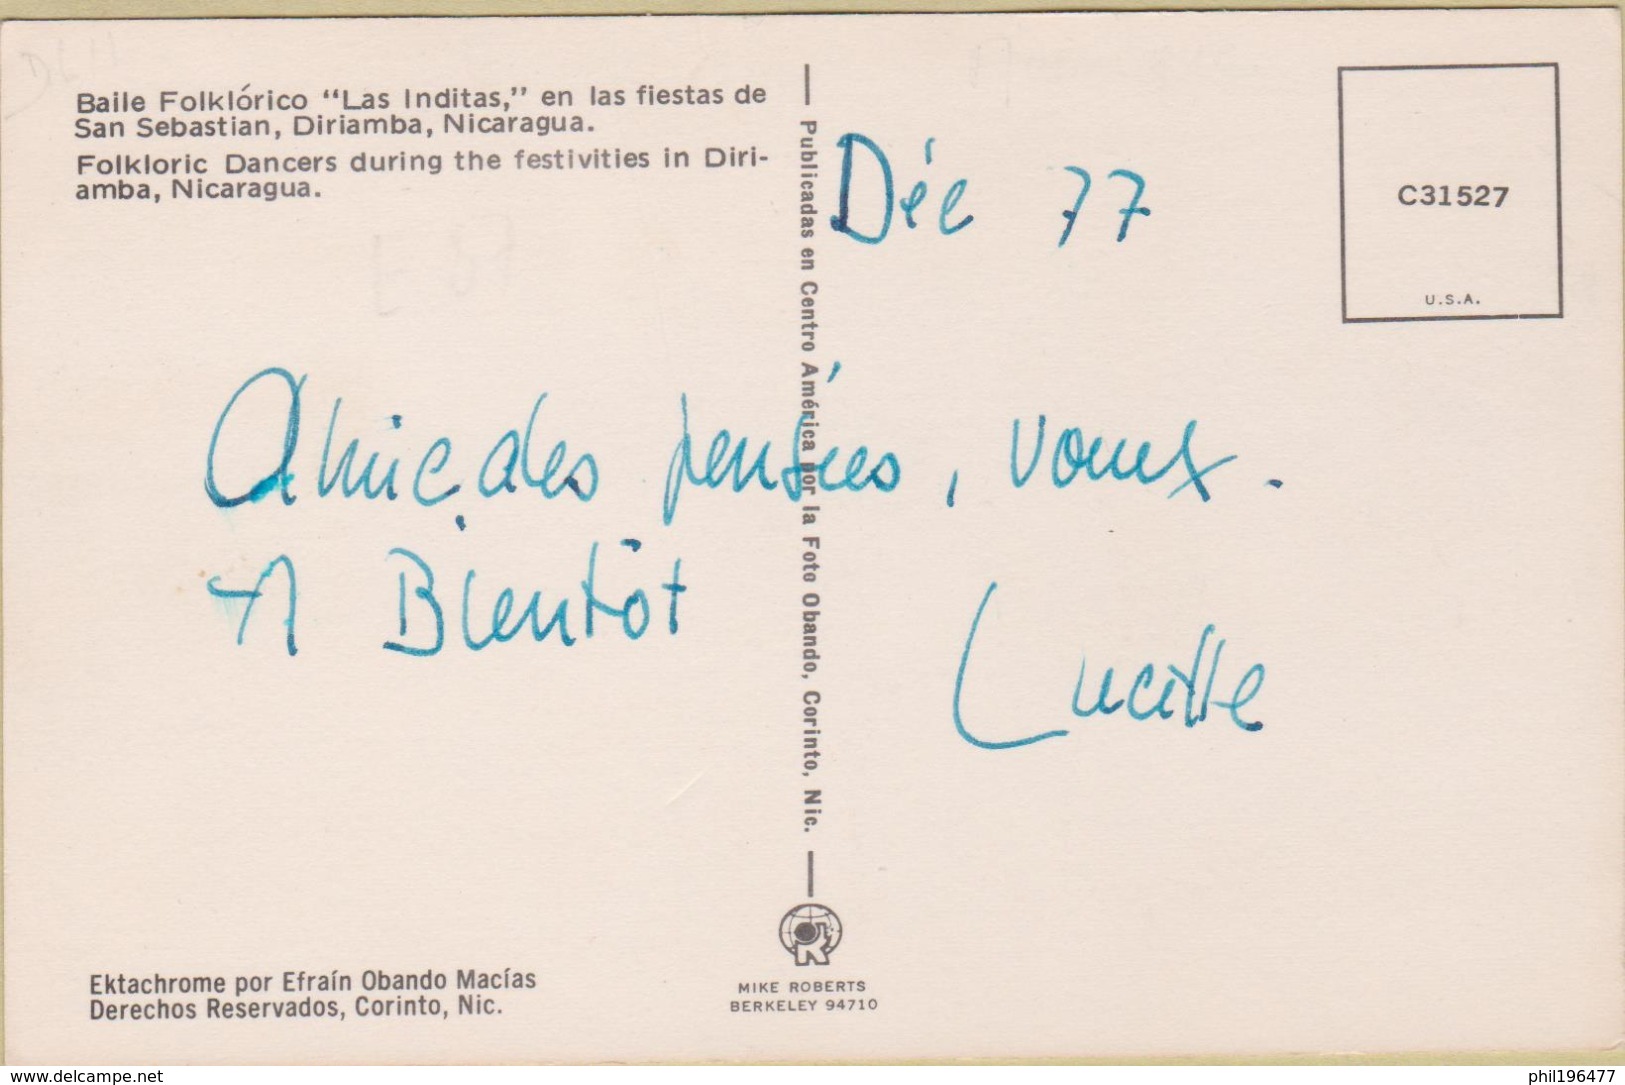 Baile Folklórico “Las Inditas,” en las fiestas de
San Sebastian, Diriamba, Nicaragua.
Folkloric Dancers during the festivities in Diri-
amba, Nicaragua.
Publicadas en Centro América por la Foto Obando, Corinto, Nic.
Déc 77
C31527
U.S.A.
Amicales pensées, voeux.
A Bientôt
Lucille
Ektachrome por Efraín Obando Macías
Derechos Reservados, Corinto, Nic.
MIKE ROBERTS
BERKELEY 94710
www.delcampe.net
phil196477